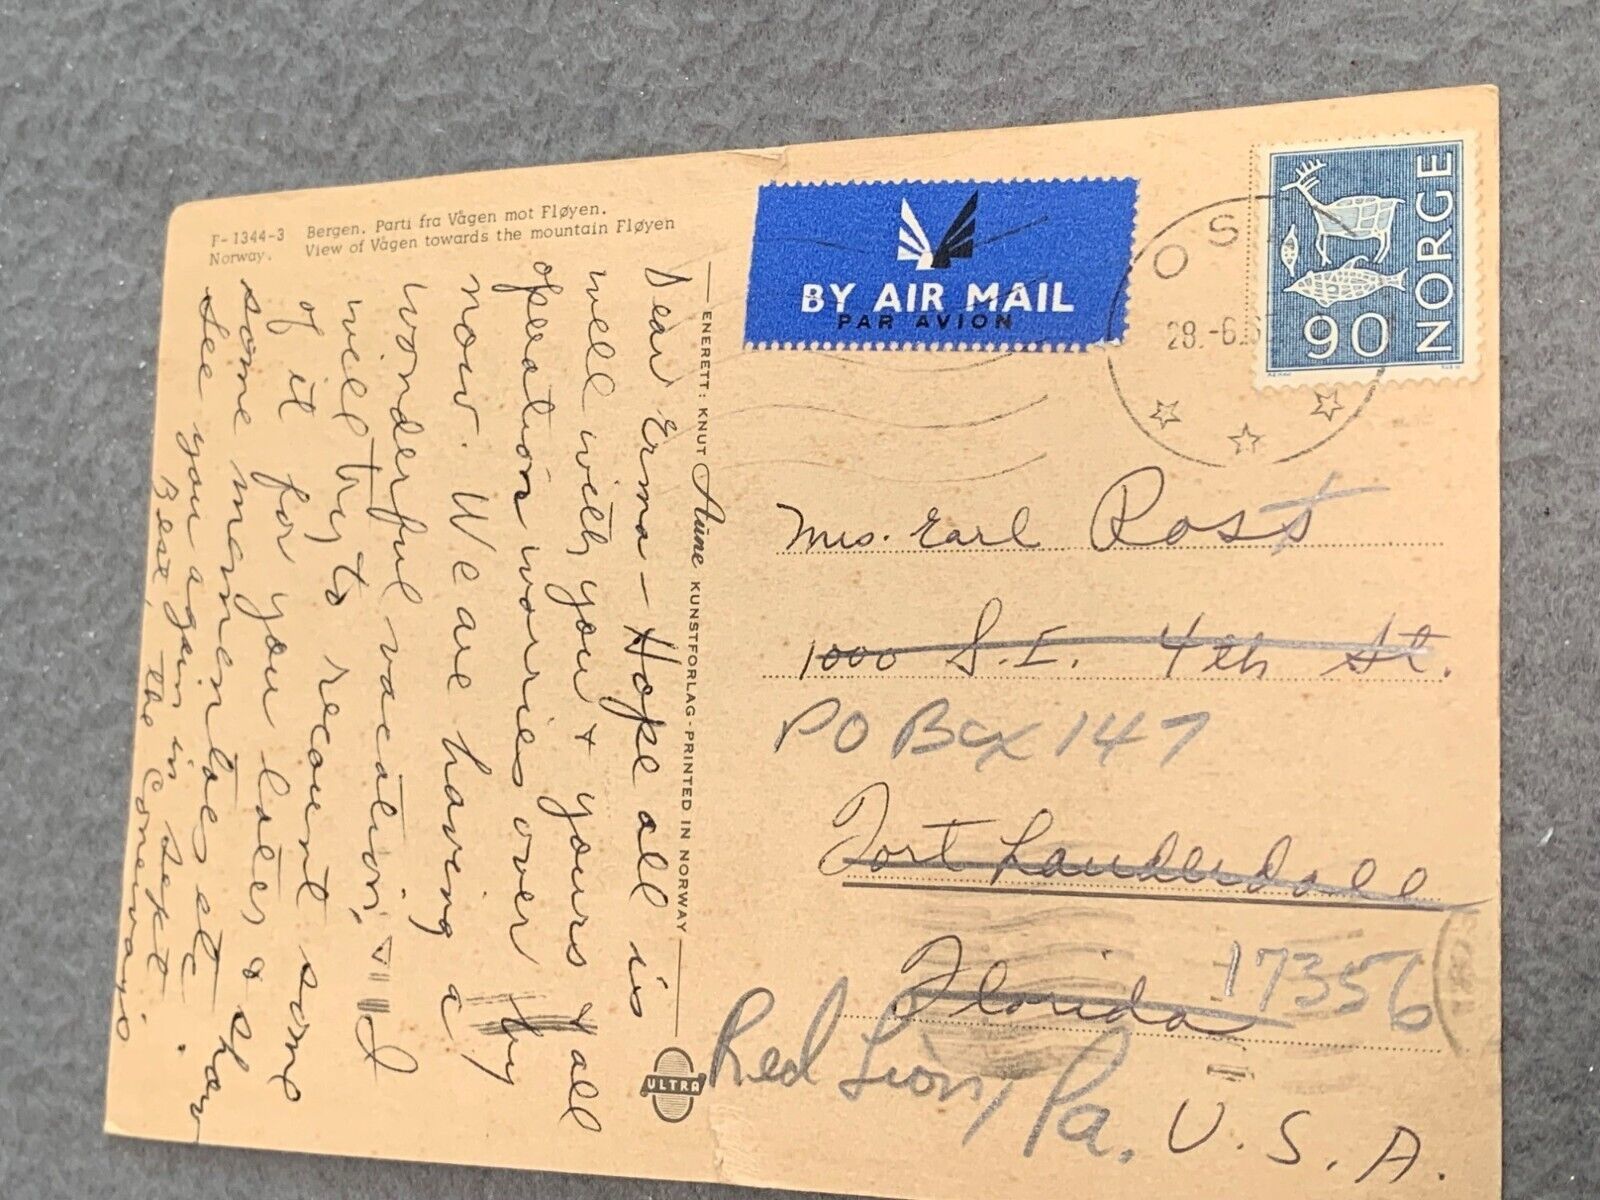 F-1344-3 Bergen. Parti fra Vågen mot Fløyen.
Norway. View of Vågen towards the mountain Fløyen
Dear Erma - Hope all is
well with you & yours & all
operation worries over by
now. We are having a
wonderful vacation. I
will try to recount some
of it for you later & show
some mementoes etc
See you again in Sept.
Best, The Conways
ENERETT: KNUT Aune KUNSTFORLAG - PRINTED IN NORWAY
ULTRA
BY AIR MAIL
PAR AVION
28.-6.67
NORGE
90
Mrs. Earl Post
1000 S.E. 4th St.
PO Box 147
Fort Lauderdale
Florida 17356
Red Lion, Pa.
U.S.A.